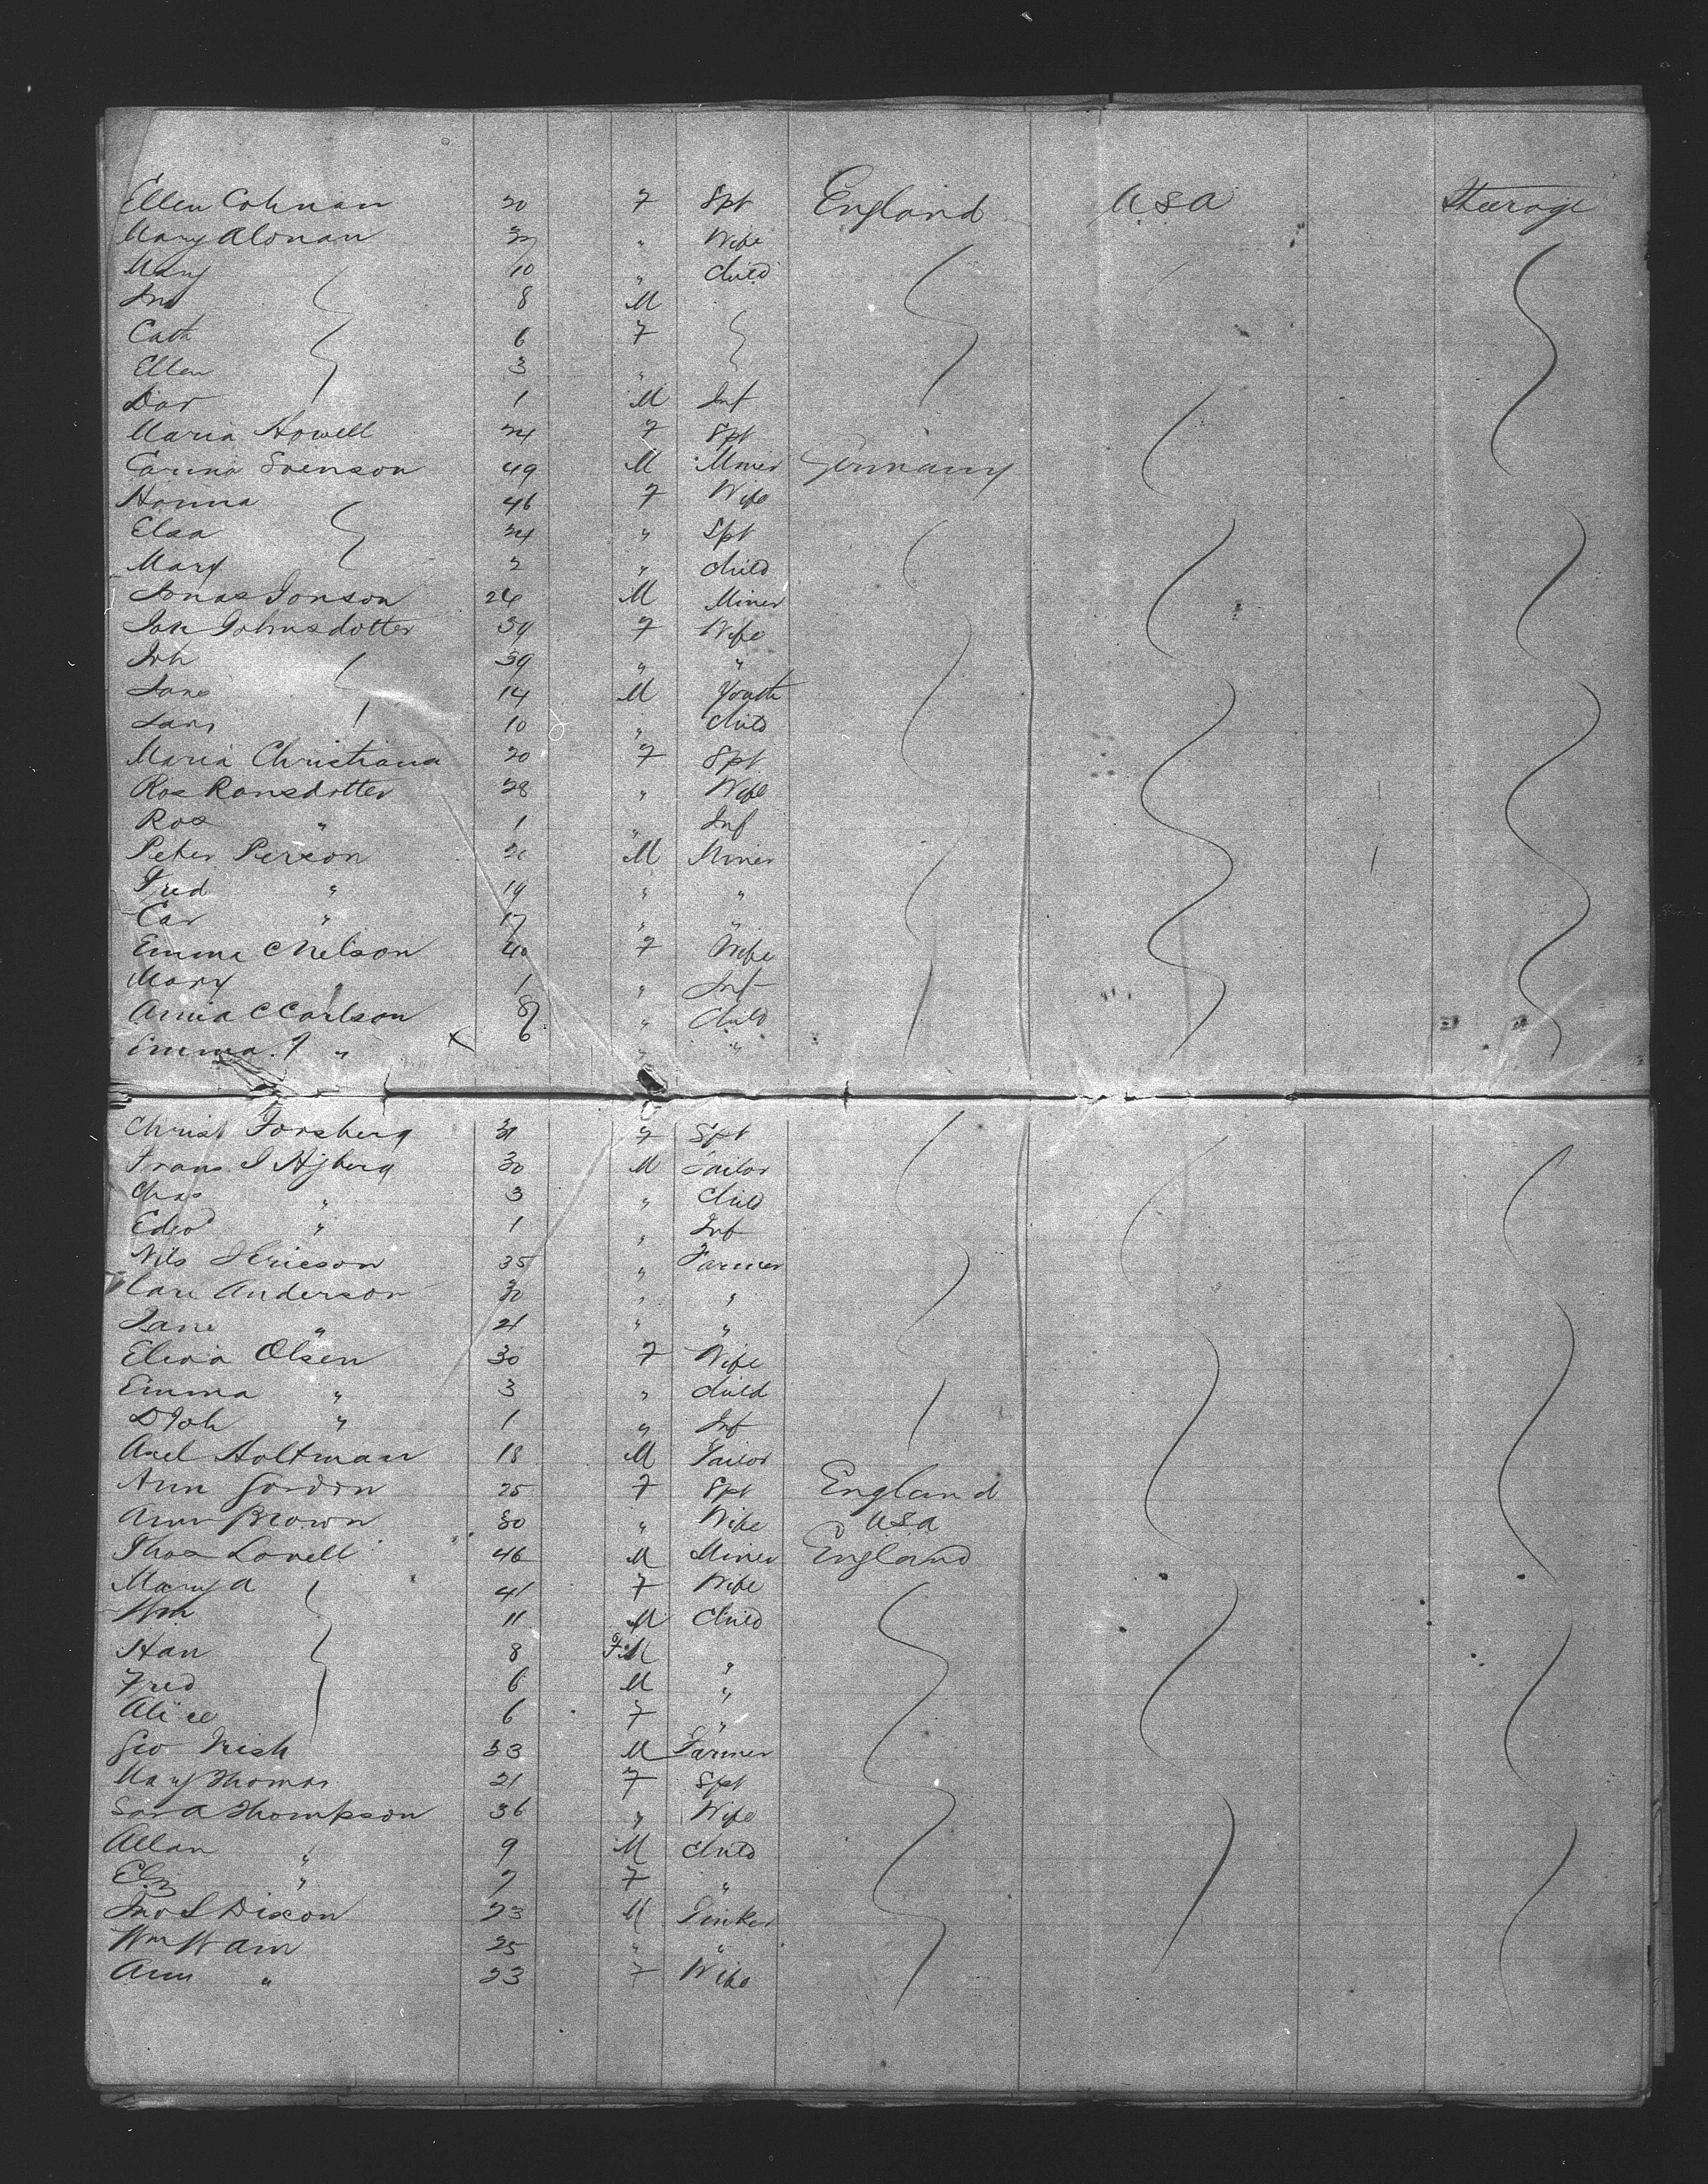 Ellen Cohnan 20 F Spt England USA Steerage
Mary Alonan 37 " Wife
Mary 10 " Child
Jno 8 M
Cath 6 F
Ellen 3 "
Dar 1 M Inf
Maria Howell 24 F Spt
Carina Svenson 49 M Miner Germany
Hanna 46 F Wife
Elsa 24 " Spt
Mary 2 " Child
Jonas Jonson 26 M Miner
Joh Johnsdotter 39 F Wife
Joh 39 " "
Jans 14 M Youth
Lars 10 " Child
Maria Christiana 20 F Spt
Ros Ransdotter 28 " Wife
Ros " 1 " Inf
Peter Person M Miner
Fred " 19 " "
Car " 17 " "
Emma C Nelson 40 F Wife
Mary " 1 " Inf
Anna C Carlson 8 " Child
Emma. J " x 6 " "
Christ Forsberg 31 F Spt
Frans J Hjberg 30 M Tailor
Chas " 3 " Child
Edwd " 1 " Inf
Nils Hericson 35 " Farmer
Carl Anderson 30 " "
Jane " 21 " "
Elvira Olsen 30 F Wife
Emma " 3 " Child
D Joh " 1 " Inf
Axel Holtman 18 M Tailor
Ann Gordon 25 F Spt England
Ann Brown 30 " Wife USA
Thos Lovell 46 M Miner England
Mary A 41 F Wife
Wm 11 M Child
Han 8 F M "
Fred 6 M "
Alice 6 F "
Geo Irish 33 M Farmer
Mary Thomas 21 F Spt
Sara Thompson 36 " Wife
Allan " 9 M Child
Eliz " 7 F "
Jno S Dixon 23 M Tinker
Wm Wain 25 " "
Ann " 23 F Wife